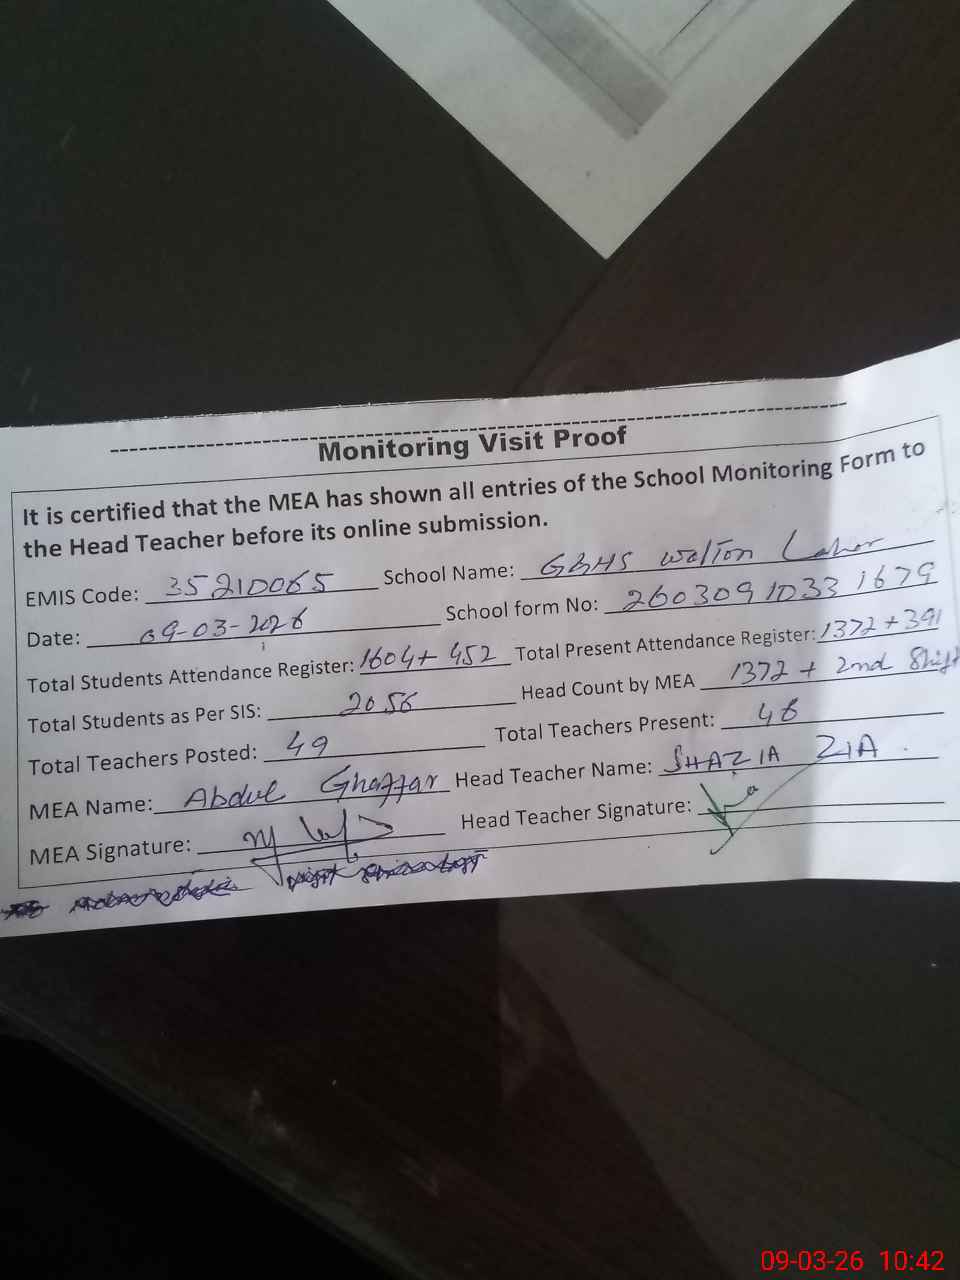 Monitoring Visit Proof
It is certified that the MEA has shown all entries of the School Monitoring Form to
the Head Teacher before its online submission.
EMIS Code: 35210065 School Name: GGHS Walton Lahor
Date: 09-03-2026 School form No: 2603091033 1679
Total Students Attendance Register: 1604+ 452 Total Present Attendance Register: 1372+391
Total Students as Per SIS: 2056 Head Count by MEA 1372 + 2nd Shift
Total Teachers Posted: 49 Total Teachers Present: 46
MEA Name: Abdul Ghaffar Head Teacher Name: SHAZIA ZIA.
MEA Signature: Head Teacher Signature:
09-03-26 10:42